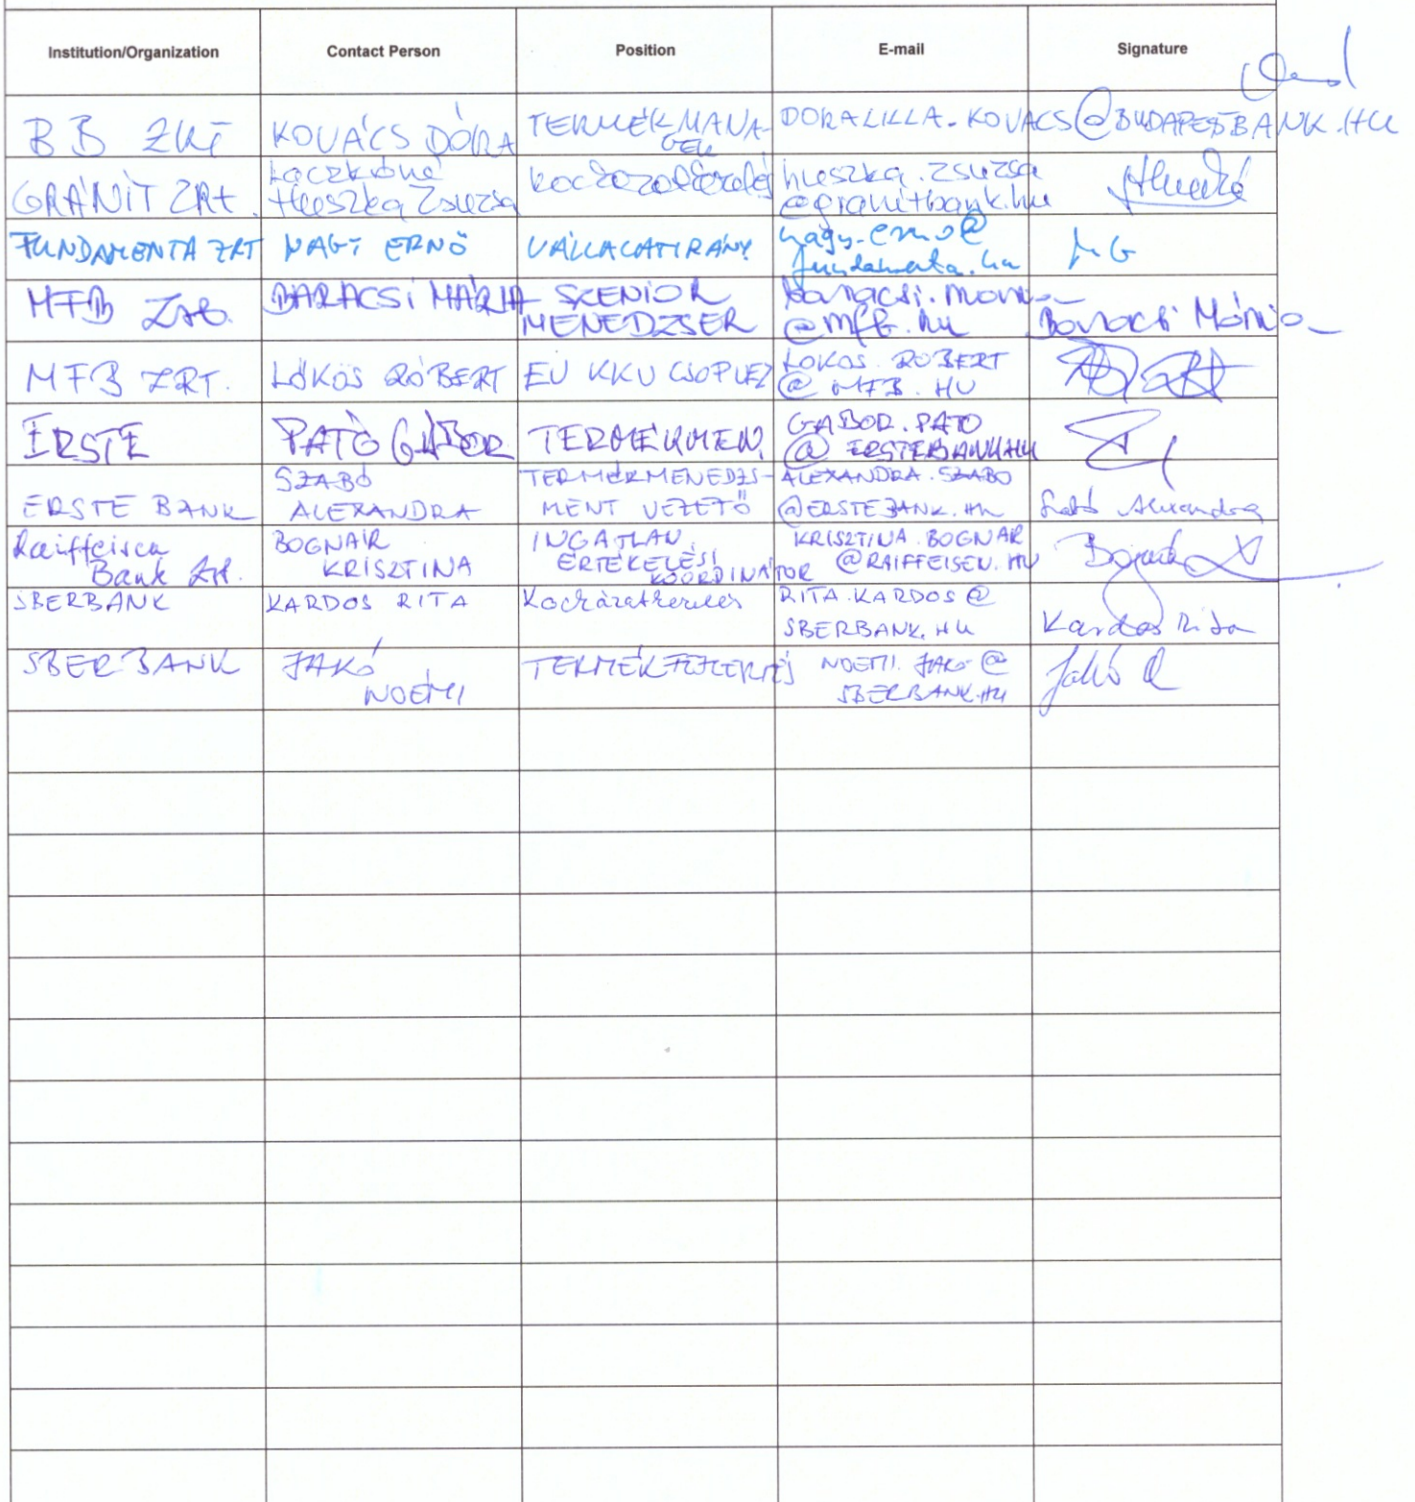 Institution/Organization Contact Person Position E-mail Signature
BB ZRT KOVÁCS DÓRA TERMÉKMANA-GER DORALILLA.KOVACS@BUDAPESTBANK.HU
GRÁNIT ZRt. Laczkóné Hueszka Zsuzsa hueszka.zsuzsa@granitbank.hu
FUNDAMENTA ZRT NAGY ERNŐ VÁLLALATIRÁNY nagy.erno@fundamenta.hu
MFB Zrt. BARACSI MÁRIA SZENIOR MENEDZSER @mfb.hu Baracsi Mária
MFB ZRT. LŐKÖS RÓBERT EU KKV CSOPVEZ LOKOS.ROBERT@MFB.HU
ERSTE PATÓ GÁBOR TERMÉKMEN. GABOR.PATO@ERSTEBANK.HU
ERSTE BANK SZABÓ ALEXANDRA TERMÉKMENEDZS-MENT VEZETŐ ALEXANDRA.SZABO@ERSTEBANK.HU Szabó Alexandra
Raiffeisen Bank Zrt. BOGNÁR KRISZTINA INGATLAN ÉRTÉKELÉSI KOORDINÁTOR KRISZTINA.BOGNAR@RAIFFEISEN.HU
SBERBANK KARDOS RITA Kockázatkezelés RITA.KARDOS@SBERBANK.HU Kardos Rita
SBERBANK JAKÓ NOÉMI TERMÉKFEJLESZTÉS NOEMI.JAKO@SBERBANK.HU